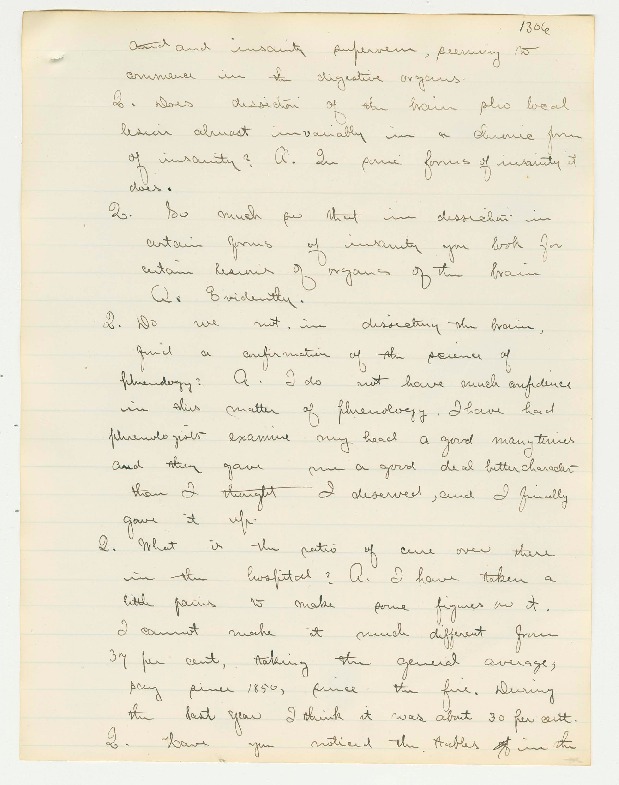 1306
and and insanity supervene, seeming to
commence in the digestive organs.
Q. Does dissection of the brain show local
lesion almost invariably in a chronic form
of insanity? A. In some forms of insanity it
does.
Q. So much so that in dissection in
certain forms of insanity you look for
certain lesions of organs of the brain
A. Evidently.
Q. Do we not, in dissecting the brain,
find a confirmation of the science of
phrenology? A. I do not have much confidence
in this matter of phrenology. I have had
phrenologists examine my head a good many times
and they gave me a good deal better character
than I thought I deserved, and I finally
gave it up.
Q. What is the ratio of cure over there
in the hospital? A. I have taken a
little pains to make some figures on it.
I cannot make it much different from
37 per cent, taking the general average,
say since 1850, since the fire. During
the last year I think it was about 30 per cent.
Q. Have you noticed the tables in the